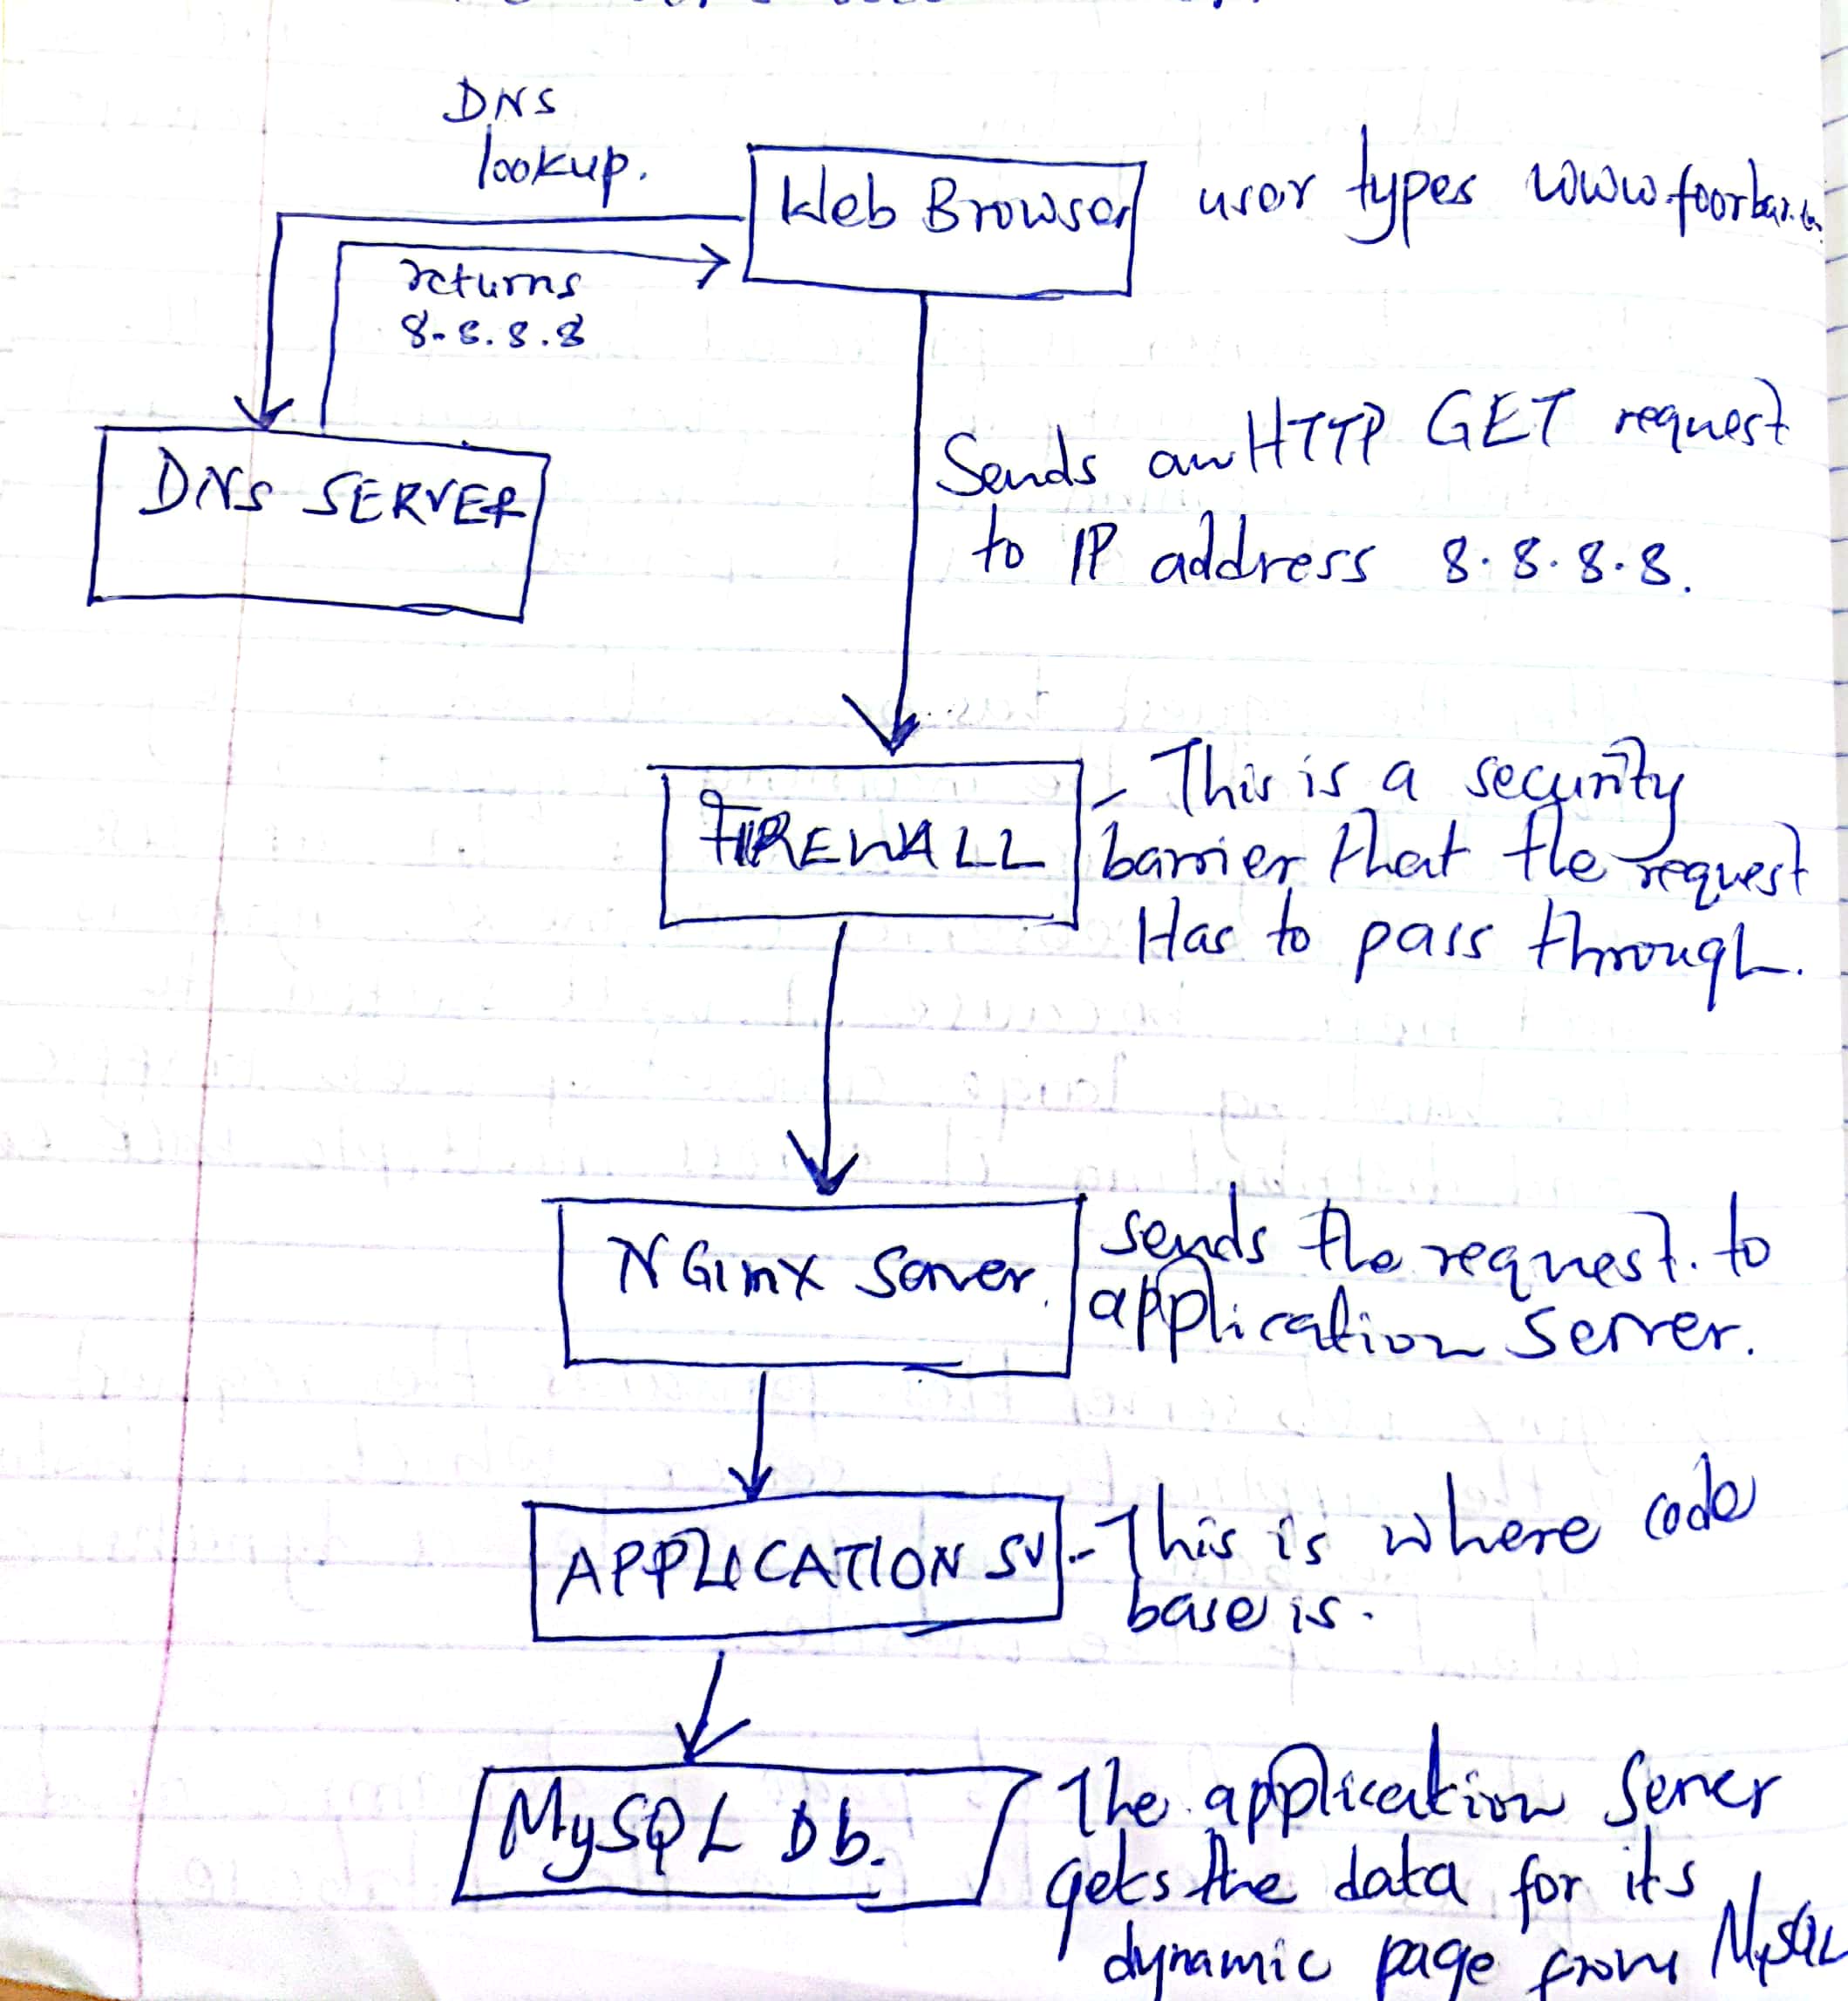 DNS
lookup.
Web Browser
user types www.foorbar.
returns
8.8.8.8
DNS SERVER
Sends an HTTP GET request
to IP address 8.8.8.8.
FIREWALL
- This is a security
barrier that the request
Has to pass through.
NGinx Server.
sends the request. to
application server.
APPLICATION SV
- This is where code
base is.
MySQL Db.
The application Server
gets the data for its
dynamic page from MySQL